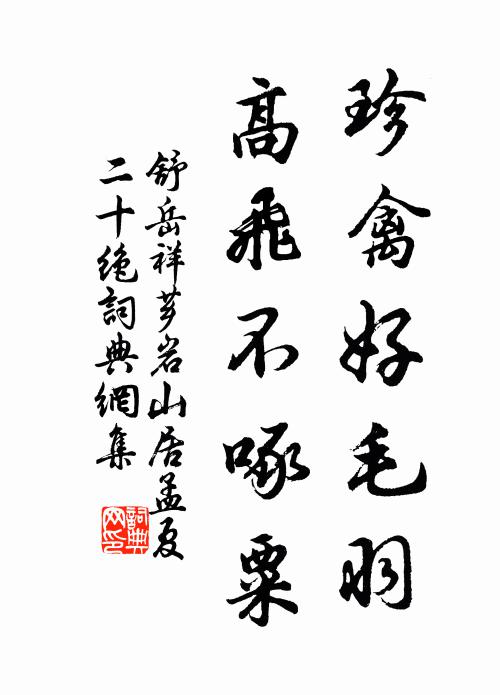 珍禽好毛羽
高飛不啄粟
舒岳祥夢岩山居孟夏
二十绝詞典網集
詞典
网印